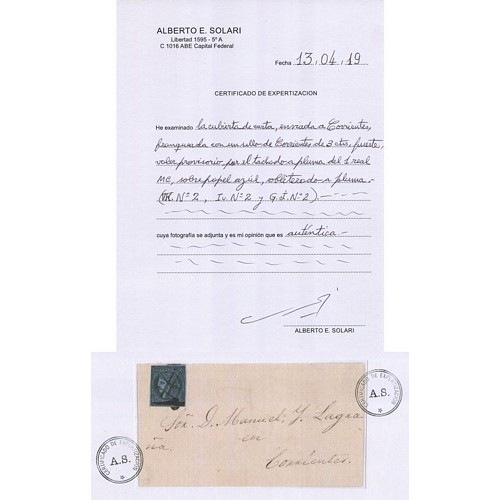 ALBERTO E. SOLARI
Libertad 1595 - 5º A
C 1016 ABE Capital Federal
Fecha 13.04.19
CERTIFICADO DE EXPERTIZACION
He examinado la cubierta de carta, enviada a Corrientes,
franqueada con un sello de Corrientes de 3 cts, fuerte,
valor provisorio por el tachado a pluma del 1 real
MC, sobre papel azúl, obliterado a pluma.-
(M. Nº 2, Iv. Nº 2 y G.J. Nº 2).-
cuya fotografía se adjunta y es mi opinión que es auténtica.-
ALBERTO E. SOLARI
CERTIFICADO DE EXPERTIZACION
A.S.
Sor. D. Manuel J. Lagraña
en
Corrientes.
CERTIFICADO DE EXPERTIZACION
A.S.